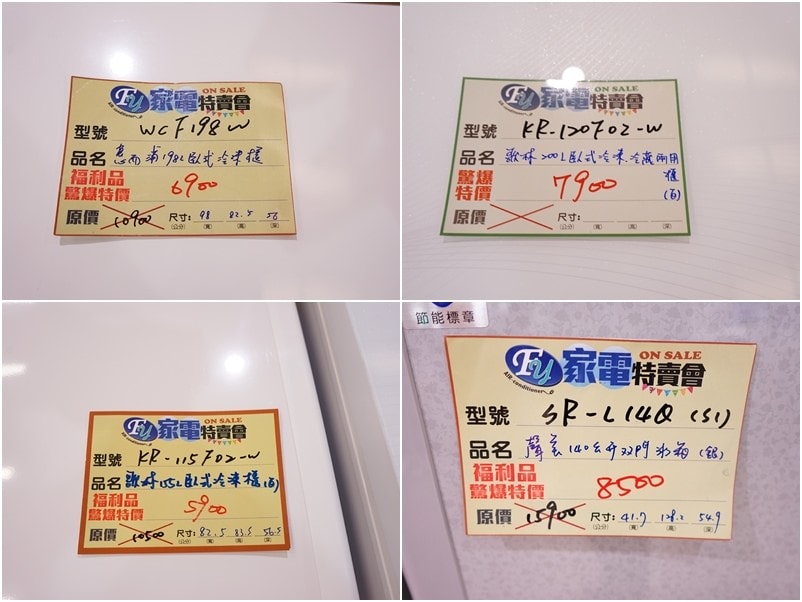 FY 家電特賣會 ON SALE
AIR-conditioner
型號 WCF198W
品名 惠而浦198L臥式冷凍櫃
福利品
驚爆特價 6900
原價 10900 尺寸: 98 82.5 56
(公分) (寬) (高) (深)
FY 家電特賣會 ON SALE
AIR-conditioner
型號 KR-120F02-W
品名 歌林200L臥式冷凍.冷藏兩用櫃(白)
驚爆
特價 7900
原價 尺寸:
(公分) (寬) (高) (深)
FY 家電特賣會 ON SALE
AIR-conditioner
型號 KR-115F02-W
品名 歌林155L臥式冷凍櫃(白)
福利品
驚爆特價 5900
原價 10500 尺寸: 82.5 83.5 56.5
(公分) (寬) (高) (深)
節能標章
FY 家電特賣會 ON SALE
AIR-conditioner
型號 SR-L14Q (S1)
品名 聲寶140公升雙門冰箱(銀)
福利品
驚爆特價 8500
原價 15900 尺寸: 41.7 128.2 54.9
(公分) (寬) (高) (深)